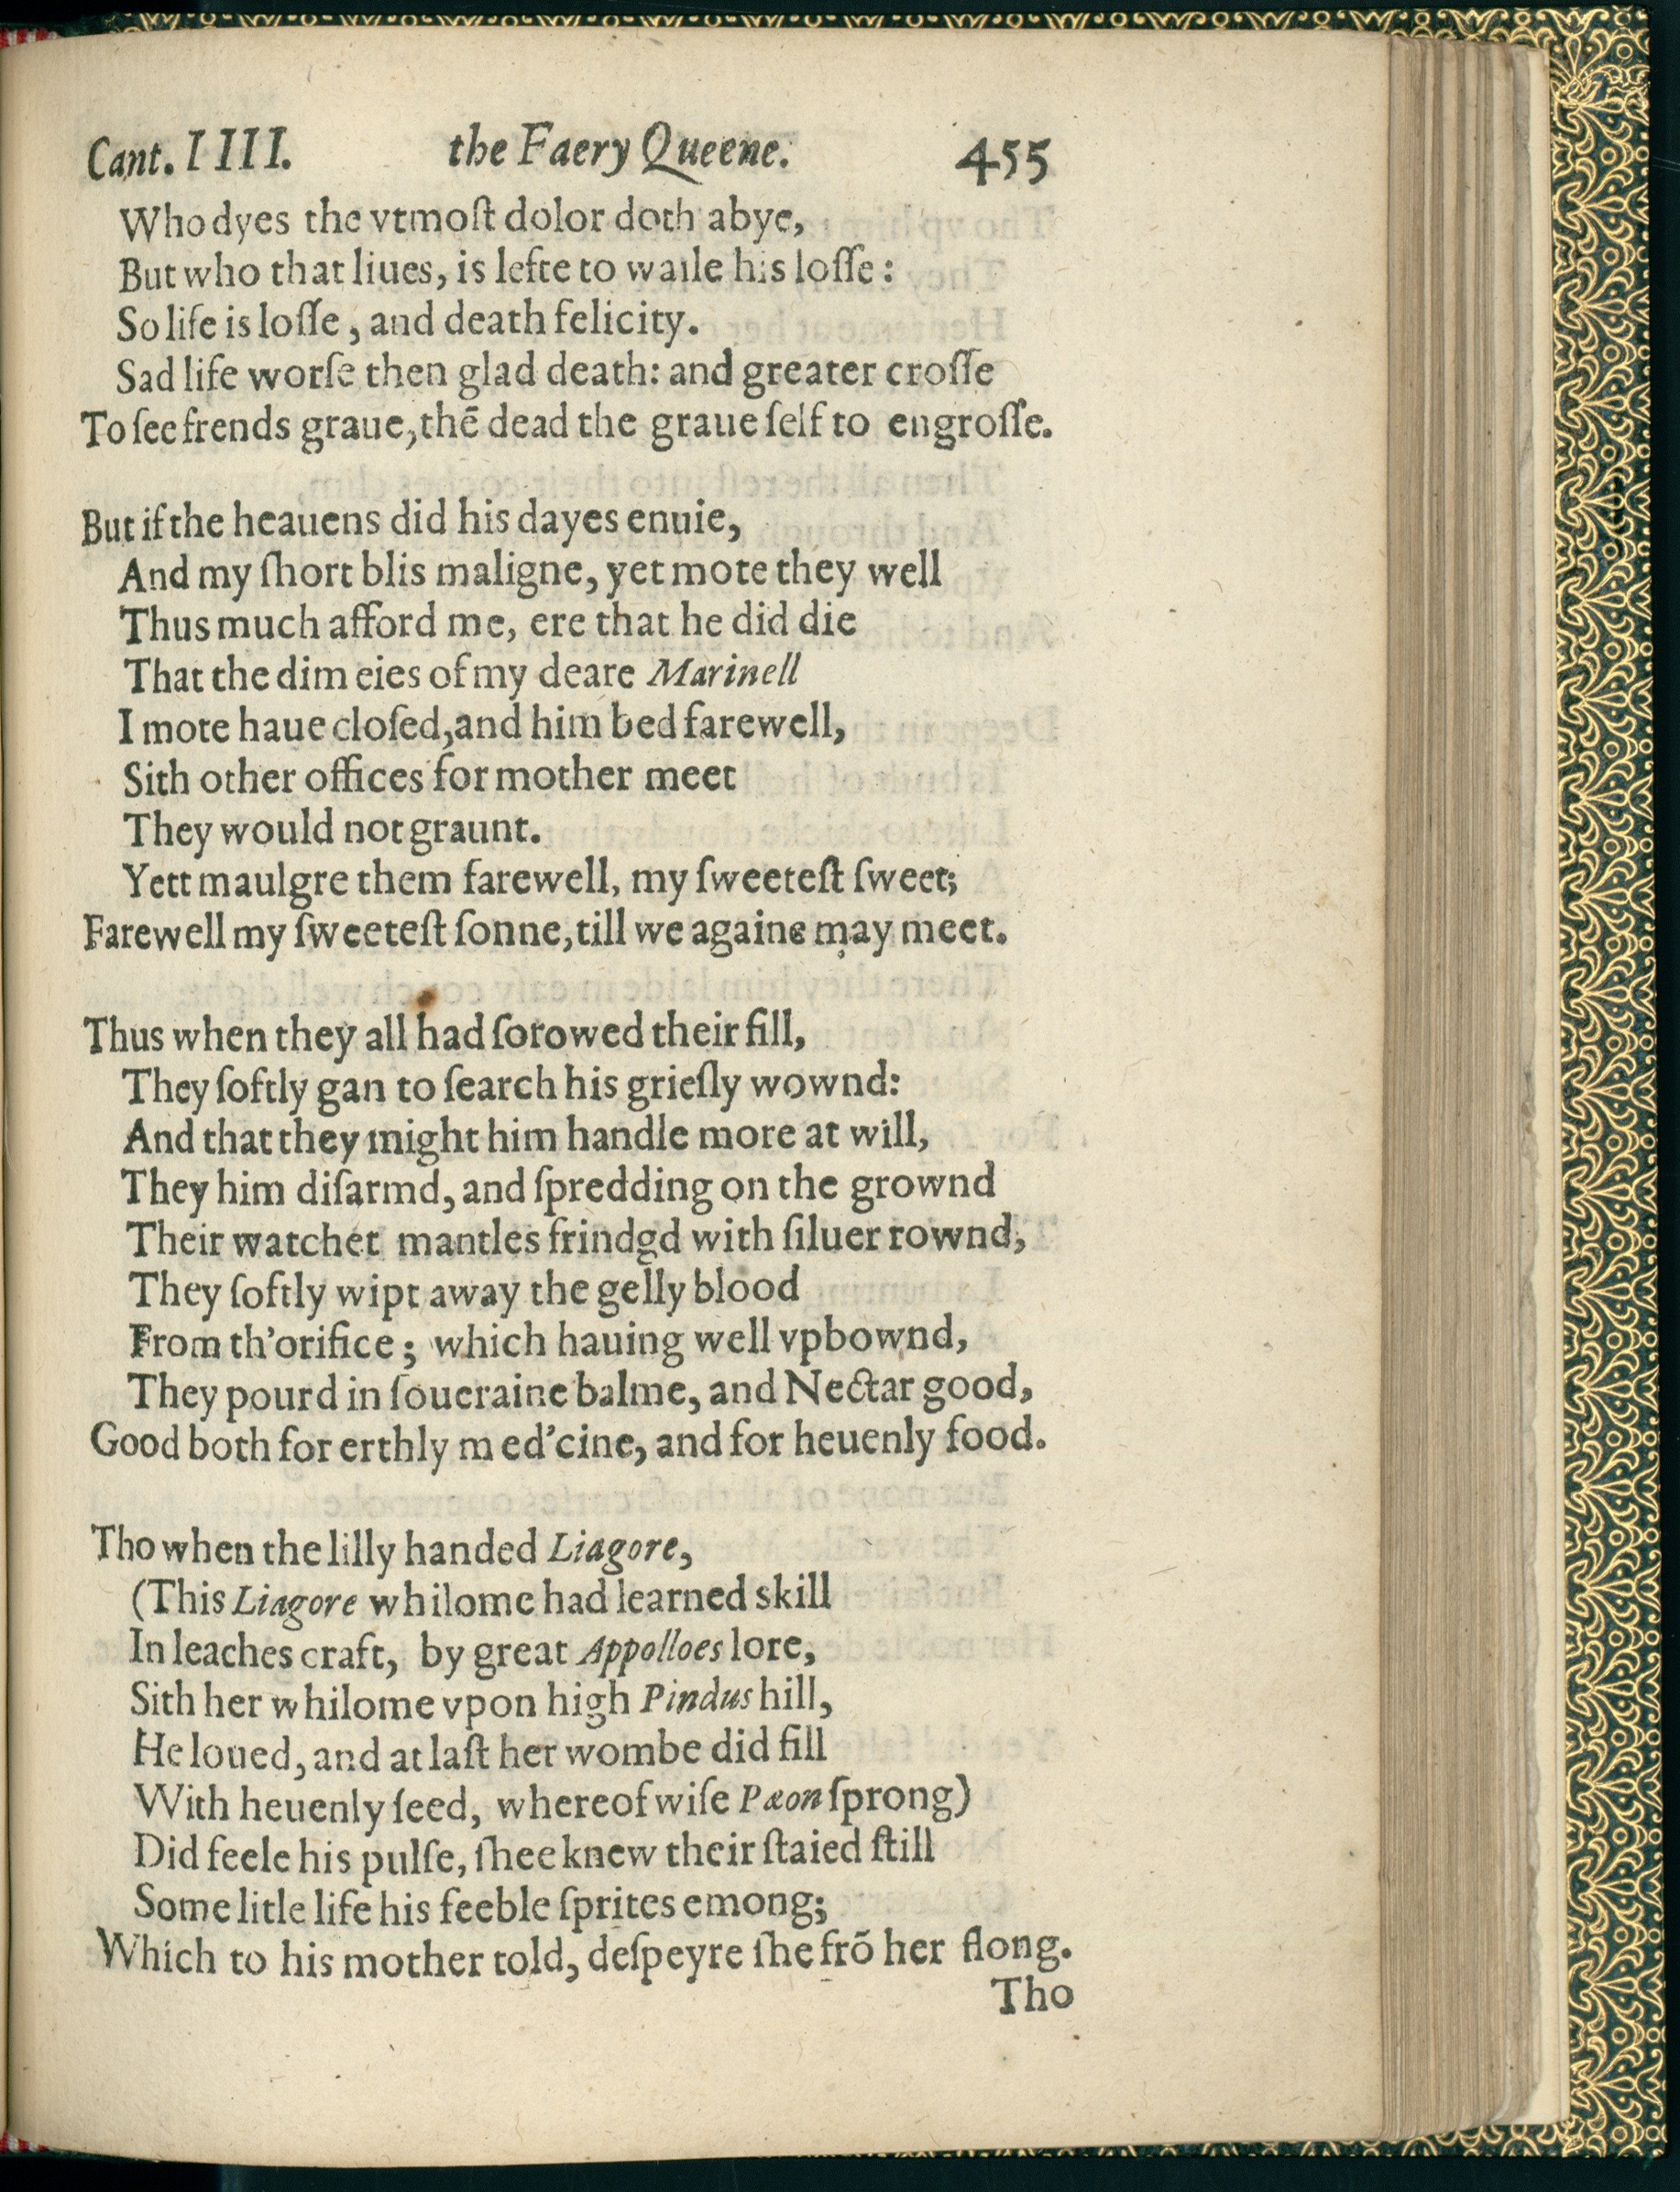 Cant. IIII. the Faery Queene. 455
Who dyes the vtmoſt dolor doth abye,
But who that liues, is lefte to waile his loſſe:
So life is loſſe, and death felicity.
Sad life worſe then glad death: and greater croſſe
To ſee frends graue, thē dead the graue ſelf to engroſſe.

But if the heauens did his dayes enuie,
And my ſhort blis maligne, yet mote they well
Thus much afford me, ere that he did die
That the dim eies of my deare Marinell
I mote haue cloſed, and him bed farewell,
Sith other offices for mother meet
They would not graunt.
Yett maulgre them farewell, my ſweeteſt ſweet;
Farewell my ſweeteſt ſonne, till we againe may meet.

Thus when they all had ſorowed their fill,
They ſoftly gan to ſearch his grieſly wownd:
And that they might him handle more at will,
They him diſarmd, and ſpredding on the grownd
Their watchet mantles frindgd with ſiluer rownd,
They ſoftly wipt away the gelly blood
From th'orifice; which hauing well vpbownd,
They pourd in ſoueraine balme, and Nectar good,
Good both for erthly med'cine, and for heuenly food.

Tho when the lilly handed Liagore,
(This Liagore whilome had learned skill
In leaches craft, by great Appolloes lore,
Sith her whilome vpon high Pindus hill,
He loued, and at laſt her wombe did fill
With heuenly ſeed, whereof wiſe Pæon ſprong)
Did feele his pulſe, ſhee knew their ſtaied ſtill
Some litle life his feeble ſprites emong;
Which to his mother told, deſpeyre ſhe frō her flong.
Tho